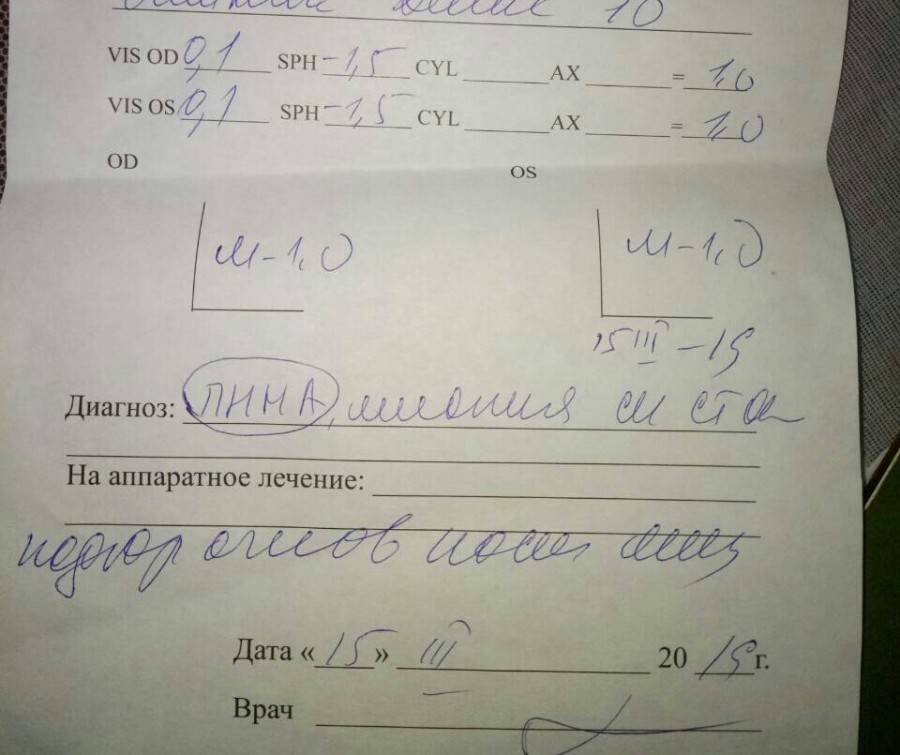 10
VIS OD 0,1 SPH -1,5 CYL AX = 1,0
VIS OS 0,1 SPH -1,5 CYL AX = 1,0
OD OS
М-1,0 М-1,0
15 III - 19
Диагноз: ПИНА, миопия сл ст ОИ
На аппаратное лечение:
подбор очков после
Дата «15» III 2019г.
Врач